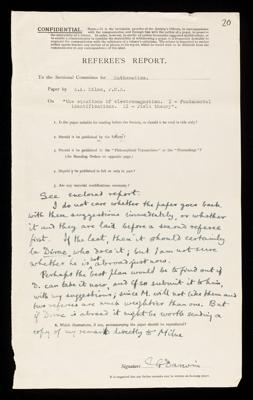 20
CONFIDENTIAL.
REFEREE'S REPORT.
To the Sectional Committee for Mathematics.
Paper by E.A. Milne, F.R.S.
On "The equations of electromagnetism. I - Fundamental
identifications. II - Field theory".
1. Is the paper suitable for reading before the Society, or should it be read in title only?
2. Should it be published by the Society?
3. Should it be published in the "Philosophical Transactions" or the "Proceedings"?
(See Standing Orders on opposite page.)
4. Should it be published in full or only in part?
5. Are any material modifications necessary?
See enclosed report.
I do not care whether the paper goes back
with these suggestions immediately, or whether
it and they are laid before a second referee
first. If the last, then it should certainly
be Dirac, who does it; but I am not sure
whether he is not abroad just now.
Perhaps the best plan would be to find out if
D. can take it now, and if so submit it to him,
with my suggestions; since M. will not like them and
two referees are more weightier than one. But
if Dirac is abroad it might be worth sending a
copy of my remarks directly to Milne
6. Which illustrations, if any, accompanying the paper should be reproduced?
Signature C G Darwin